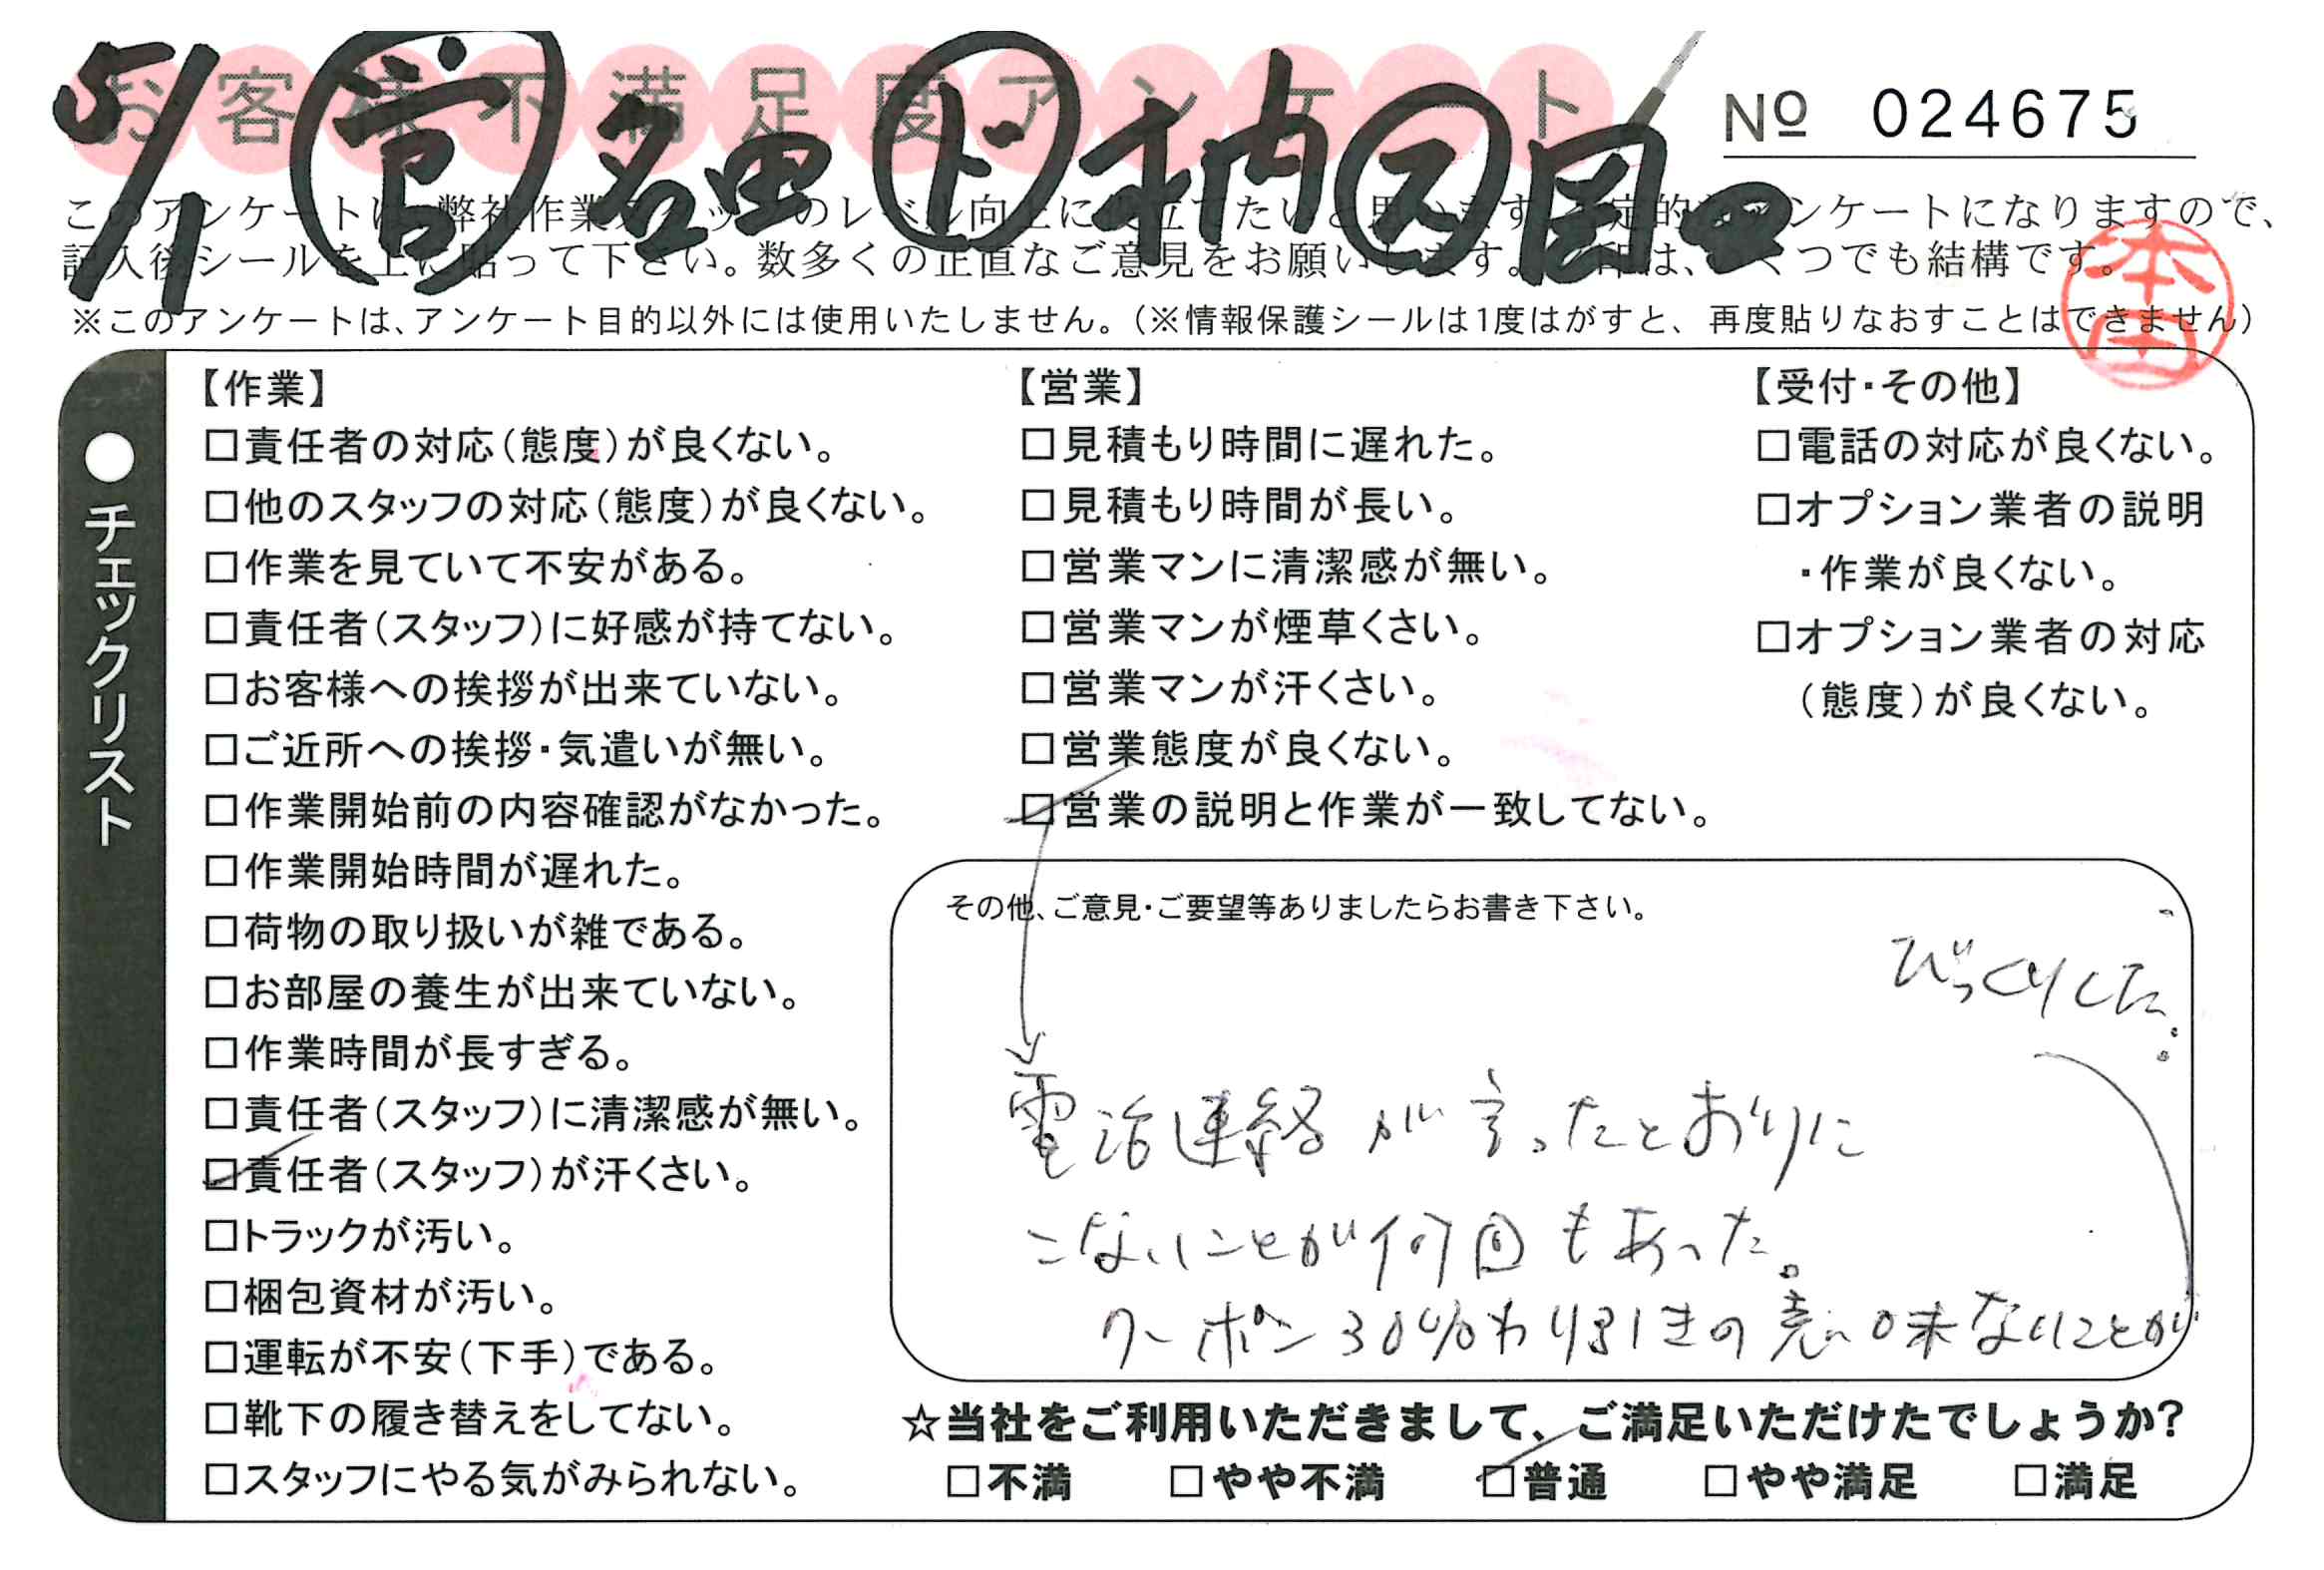 お客様不満足度アンケート
№ 024675
5/1 営 名田 ド 稲 ス 岡田
このアンケートは、弊社作業スタッフのレベル向上に役立てたいと思います。定的なアンケートになりますので、
記入後シールを上に貼って下さい。数多くの正直なご意見をお願いします。印は、いくつでも結構です。
※このアンケートは、アンケート目的以外には使用いたしません。(※情報保護シールは1度はがすと、再度貼りなおすことはできません)
本田
●チェックリスト
【作業】
□責任者の対応(態度)が良くない。
□他のスタッフの対応(態度)が良くない。
□作業を見ていて不安がある。
□責任者(スタッフ)に好感が持てない。
□お客様への挨拶が出来ていない。
□ご近所への挨拶・気遣いが無い。
□作業開始前の内容確認がなかった。
□作業開始時間が遅れた。
□荷物の取り扱いが雑である。
□お部屋の養生が出来ていない。
□作業時間が長すぎる。
□責任者(スタッフ)に清潔感が無い。
☑責任者(スタッフ)が汗くさい。
□トラックが汚い。
□梱包資材が汚い。
□運転が不安(下手)である。
□靴下の履き替えをしてない。
□スタッフにやる気がみられない。
【営業】
□見積もり時間に遅れた。
□見積もり時間が長い。
□営業マンに清潔感が無い。
□営業マンが煙草くさい。
□営業マンが汗くさい。
□営業態度が良くない。
☑営業の説明と作業が一致してない。
【受付・その他】
□電話の対応が良くない。
□オプション業者の説明
・作業が良くない。
□オプション業者の対応
(態度)が良くない。
その他、ご意見・ご要望等ありましたらお書き下さい。
電話連絡が言ったとおりに
こないことが何回もあった。
クーポン30%わり引きの意味ないことが
びっくりした。
☆当社をご利用いただきまして、ご満足いただけたでしょうか?
□不満 □やや不満 ☑普通 □やや満足 □満足